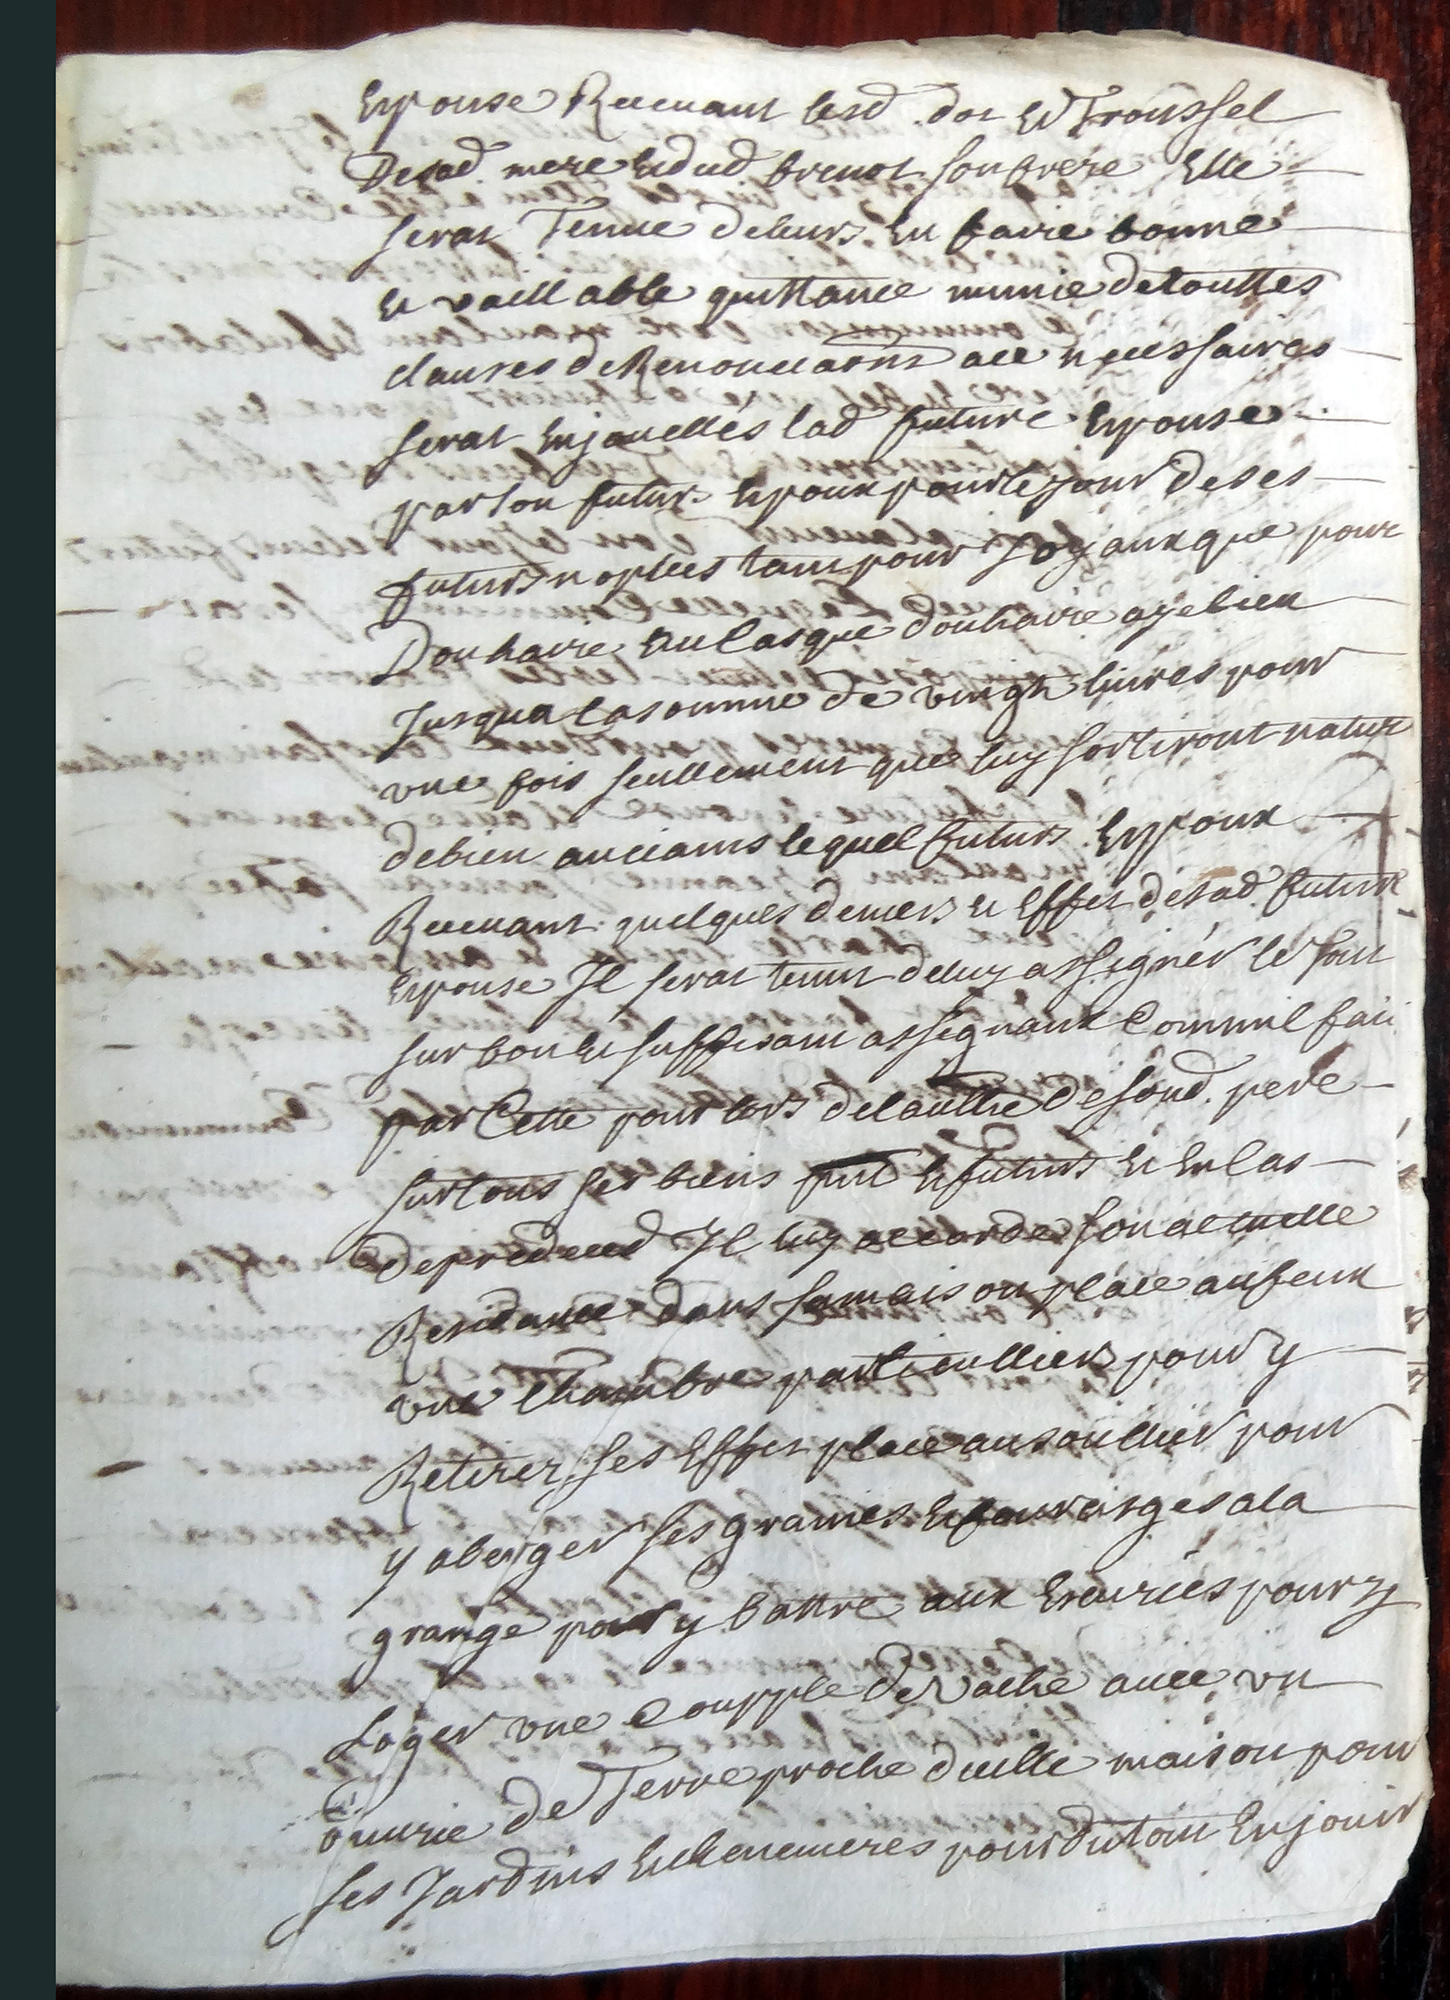 Epouse Recevant lesd. dot et Troussel
De sad. mere et dud brenot son frere Elle
serat Tenue de leurs en faire bonne
et vaillable quittance munie de touttes
clauses de Renonciaons ace necessaires
serat Enjouellés lad future Epouse
par son futur Epoux pour le jour de ses
futurs nopces tant pour Joyaux que pour
Douhaire en cas que douhaire aye lieu
Jusqua la somme de vingt livres pour
une fois seullement que luy sortiront nature
de bien anciains lequel futurs Epoux
Recevant quelques deniers et Effet de sad. future
Epouse Il serat tenut de luy assigner le tout
sur bon et suffisant assignaux Comm il fait
par Cette pour lors de lautthé de sond. pere
sur tous ses biens pnt et futurs et En Cas
de predeced Il luy accorde son actuelle
Residance dans sa maison place au feux
une Chambre particulliers pour y
Retirer ses Effet place au soullier pour
y aberger ses graines et fourasges a la
grange pour y battre aux Ecuries pour y
Loger une Coupple de Vache avec un
ouvrie de Terre proche dicelle maison pour
ses Jardins et chenevieres pour du tout En jouir